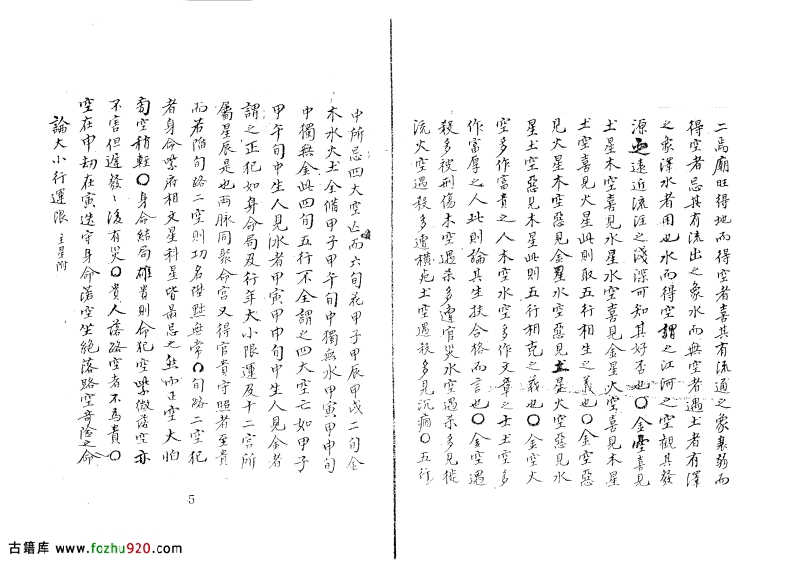 二爲廟旺得地而得空者喜其有流通之象衰弱而
得空者忌其有流出之象水而無空者遇土者有澤
之象澤水者用也水而得空謂之江河之空觀其發
源遠近流注之淺深可知其好否也○金星喜見
土星木空喜見水星水空喜見金星火空喜見木星
土空喜見火星此則取五行相生之義也○金空惡
見火星木空惡見金星水空惡見土星火空惡見水
星土空惡見木星此則五行相克之義也○金空火
空多作富貴之人木空水空多作文章之士土空多
作富厚之人此則論其生扶合格而言也○金空遇
殺多被刑傷木空遇杀多遭官災水空遇杀多見徙
流火空遇殺多遭橫死土空遇殺多見沉痼○五行
中所忌四大空亡而六旬花甲子甲辰甲戌二旬金
木水火土全備甲子甲午旬中獨無水甲寅甲申旬
中獨無金此四旬五行不全謂之四大空亡如甲子
甲午旬中生人見水者甲寅甲申旬中生人見金者
謂之正犯如身命局及行年大小限運及十二宮所
屬星辰是也兩脉同聚命宮又得官貴守照者至貴
而若陷旬路二空則功名陞黜無常○旬路二空犯
者身命紫府相文星科星皆最忌之然而正空大怕
旬空稍輕○身命結局雄貴則命犯空紫微落空亦
不害但遲發後有災○貴人落路空者不爲貴○
空在申劫在寅迭守身命落空坐絕落路空奇險之命
論大小行運限 主星附
5
古籍库 www.fozhu920.com